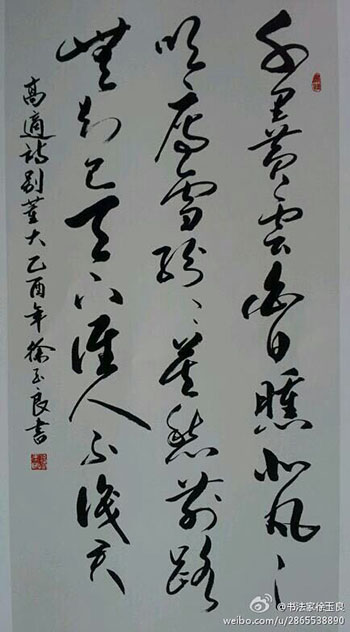 千里黄雲白日曛北風
吹雁雪紛〻莫愁前路
無知己天下誰人不識君
高適詩别董大乙酉年徐玉良書
@书法家徐玉良
weibo.com/u/2865538890